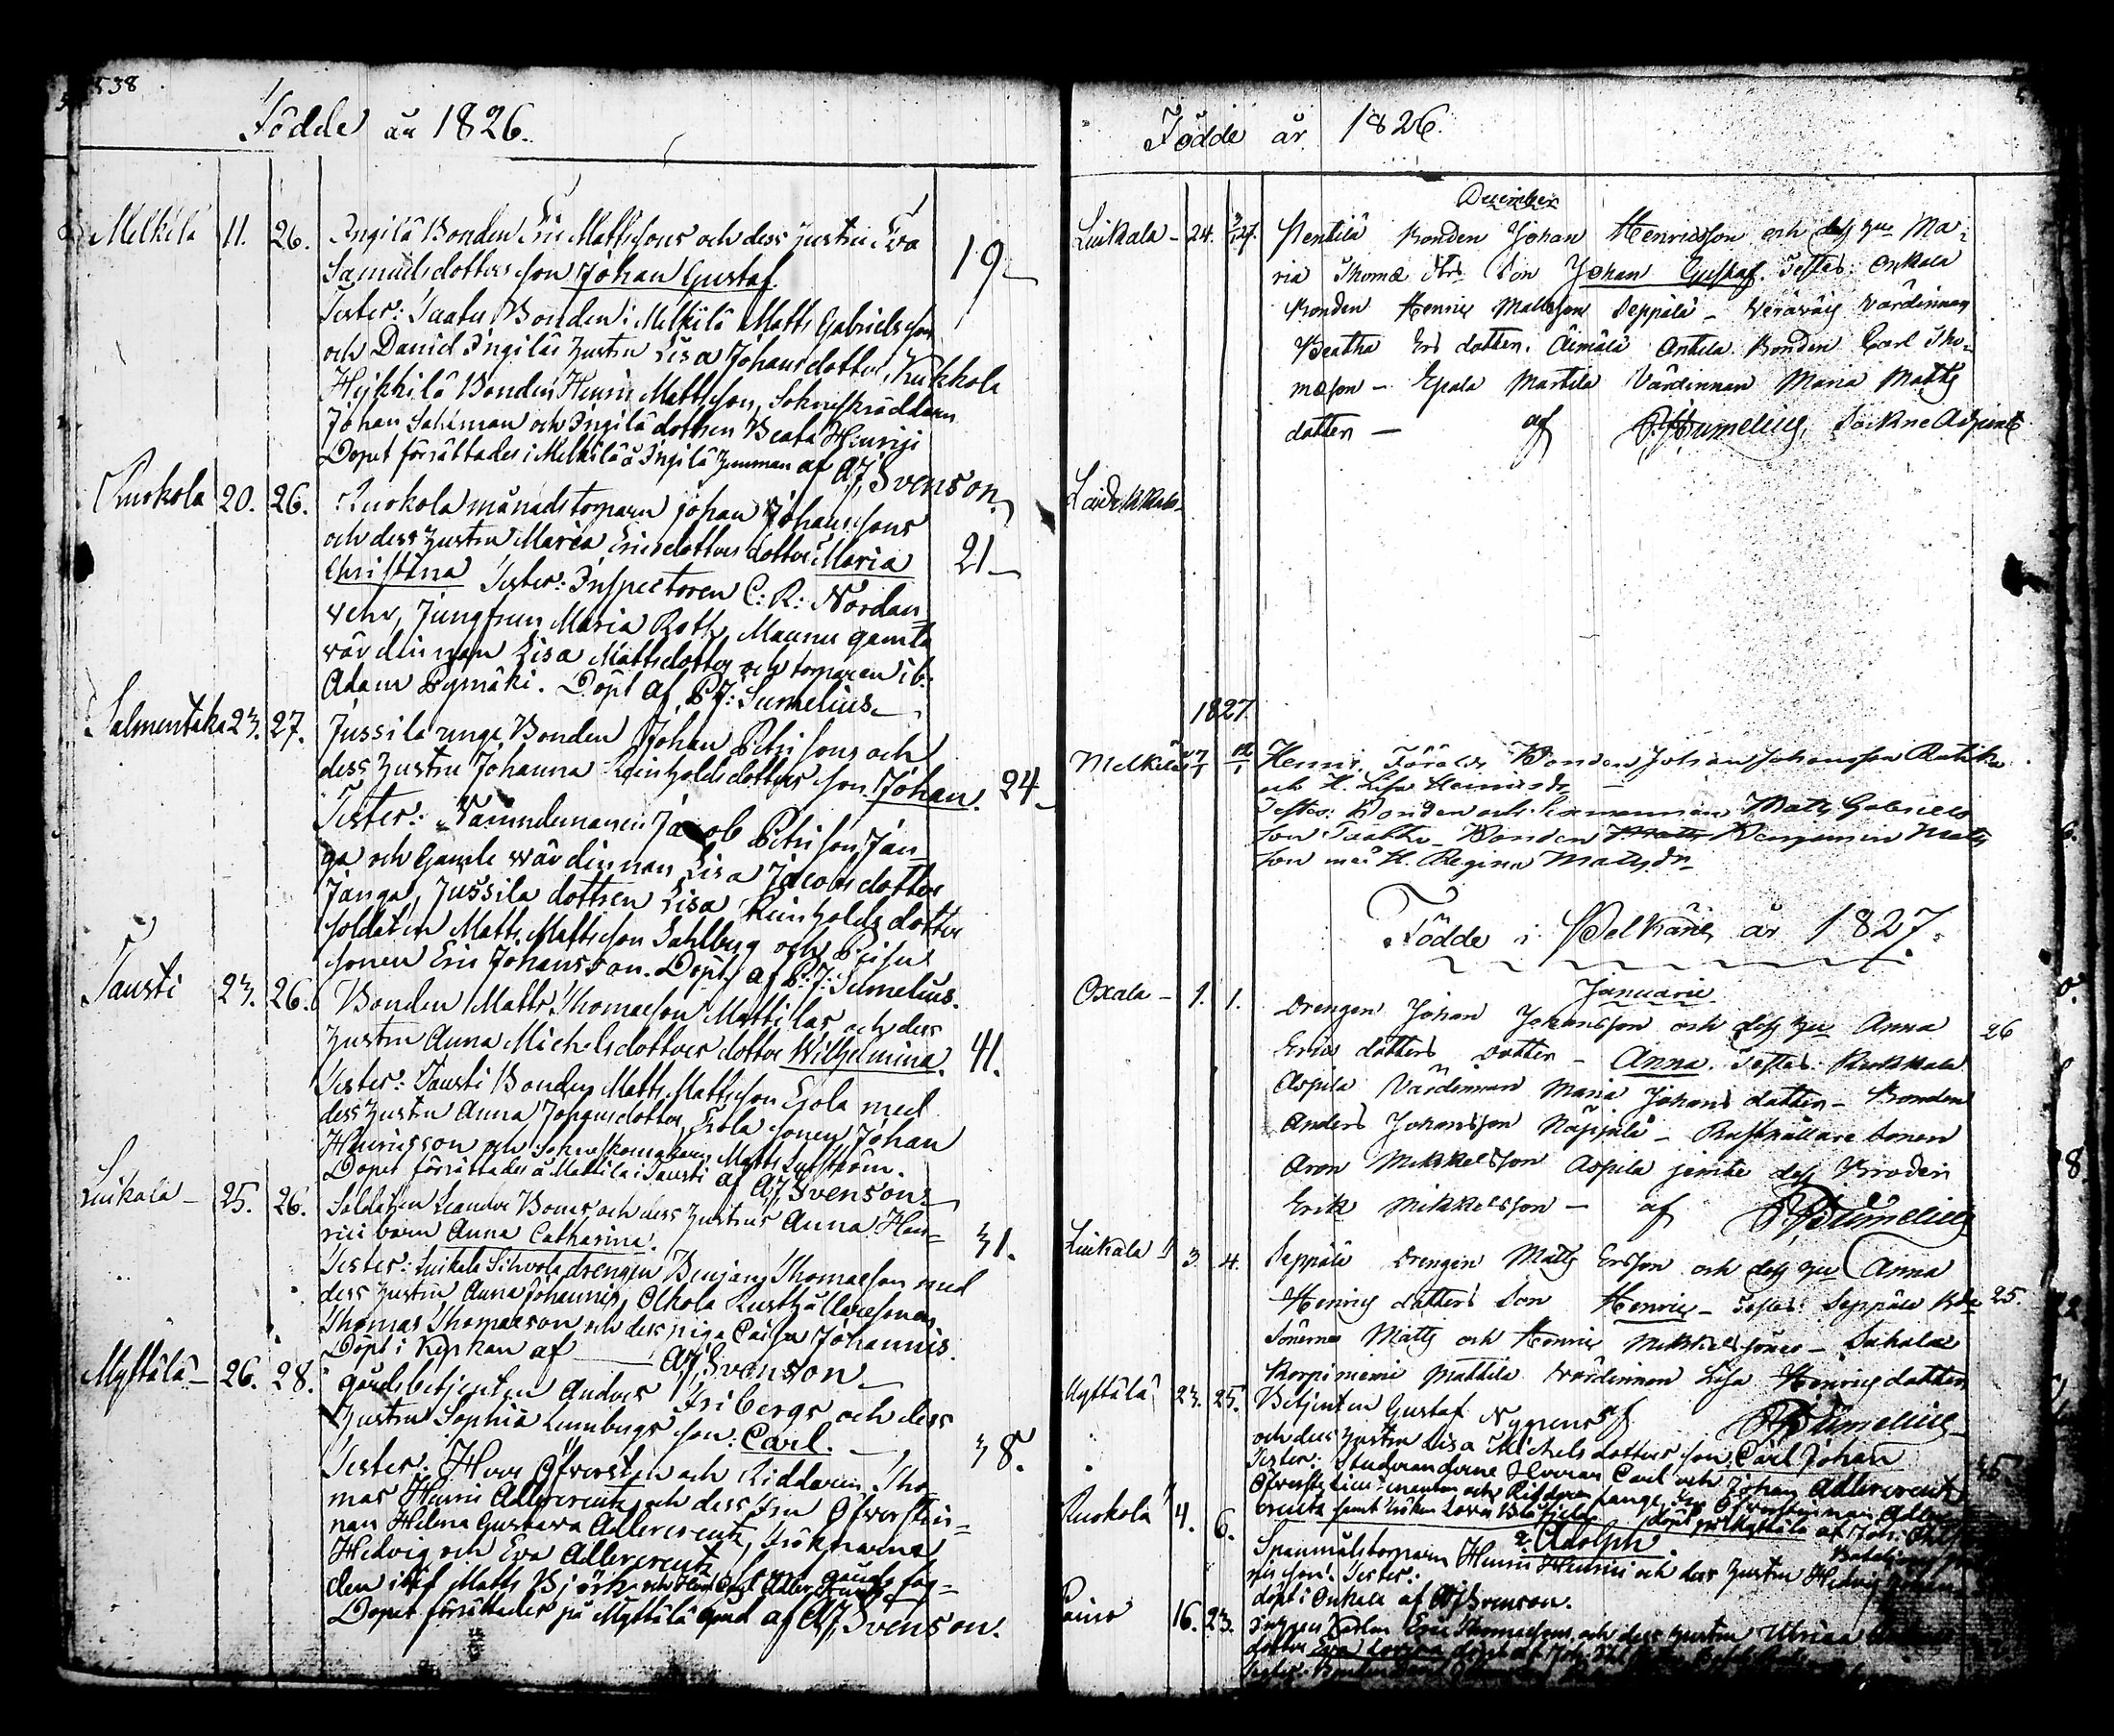 538
Födde år 1826.
Melkilä 11. 26. Ingilä Bonden Eric Mattssons och dess hustru Eva
Samuelsdotters son Johan Gustaf. 19
Tester: Taatu Bonden i Melkilä Matts Gabrielsson
och David Ingiläs hustru Lisa Johansdotter, Kukkola
Heikkilä Bonden Henric Mattsson, Sokneskräddaren
Johan Sahlman och Ingilä dottren Beata Henrici
Dopet förrättades i Melkilä å Ingilä hemman af AJ, Svenson.
Ruokola 20. 26. Ruokola månadstorparn johan Johanssons
och dess hustru Maria Ericsdotters dotter Maria 21
Christina Tester: Inspectoren C: R: Nordan
wehr, Jungfrun Maria Roth, Maunu gamla
värdinnan Lisa Mattsdotter och torparen ib:
Adam Pymäki. Döpt af P:J: Sumelius
Salmentaka 23. 27. Jussila unge Bonden Johan Petrisons och
dess hustru Johanna Reinholdsdotters son Johan. 24
Tester: Nämndemannen Jacob Petrison Jan=
ga och Gamle wärdinnan Lisa Jacobsdotter
Janga, Jussila dottren Lisa Reinholdsdotter
soldaten Matts Mattsson Sahlberg och
sonen Eric Johansson. Döpt af P:J: Sumelius.
Tausti 23. 26. Bonden Matts Thomaeson Mattilas och dess
hustru Anna Michelsdotters dotter Wilhelmina. 41.
Tester: Tausti Bonden Matts Mattsson Ejola med
dess hustru Anna Johansdotter, Ejola sonen Johan
Henricsson och Sokneskomakaren Matts
Dopet förrättades å Mattila i Tausti af AJ, Svenson
Luikala 25. 26. Soldaten Leander Boms och dess hustrus Anna Hen=
rici barn Anna Catharina. 31.
Tester: Luikala Sihvola drengen Benjam: Thomaeson med
dess hustru Anna Johannis, Olkola Rusthållaresonen
Thomas Thomaeson och dess piga Caisa Johannis.
Döpt i Kyrkan af AJ, Svenson
Myttälä 26. 28. gårdsbetjenten Anders Fribergs och dess
hustru Sophia Lembergs son: Carl. 38.
Tester: Herr Öfversten och Riddaren Tho
mas Henric Adlercreutz och dess Fru Öfverstin=
nan Helena Gustava Adlercreutz, Fröknarna
Hedvig och Eva Adlercreutz
den ibid Matts Björk och Herr Carl Adlercreutz
Dopet förrättades på Myttälä gård af AJ, Svenson.
Födde år 1826.
December
Luikala 24. Pentilä Bonden Johan Henricsson och dess hu Ma:
ria Thomæ dtrs Son Johan Gustaf. Testes: Onkala
Bonden Henric Mattsson Seppälä - Wärdinnan
Beatha Ers dotter. Äimälä Antila Bonden Carl Tho=
mæson - Epala Martila Värdinnan Maria Matts
dotter - af PJSumelius, Sockne Adjunct
Laidekkala
1827.
Melkilä Henric, Föräldr Bonden Johan Johansson
och H. Lisa Henricsdr
Testes: Bonden och Sexmannen Matts Gabriels
son Taatu Bonden Matts Benjamin Mats
son med H. Regina Matsdr
Födde i Pelkäne år 1827.
Januarii
Oxala 1. 1. Drengen Johan Johansson och dess hu Anna 26
Erics dotters dotter - Anna. Testes: Kukkala
Aspila Värdinnan Maria Johans dotter - Bonden
Anders Johansson Näppilä - Rusthållare Sonen
Aron Mikkelsson Aspila jemte dess Broder
Erik Mikkelsson - af PJSumelius
Luikala 3. 4. Seppälä Drengen Matts Ersson och dess hu Anna
Henrics dotters Son Henric - Testes: Seppälä Bde 25.
Sönerne Matts och Henric Mikkels söner - Sahala
Korpiniemi Mattila wärdinnan Lisa Henrics dotter
af PJSumelius
Myttälä 23. 25. Betjenten Gustaf Nygrens
och dess hustru Lisa Michelsdotters son Carl Johan
Tester: Studerandene Herrar Carl och Johan Adlercreutz
Öfverste Lieutnanten och Riddaren Lange, Fru Öfverstinnan Adler
creutz samt döpt på Myttälä af Joh.
Ruokola 4. 6. Adolph.
Spannmålstorparn Henric Henrici och dess hustru Hedvig
son. Tester:
döpt i Onkala af AJSvenson.
16. 23. Eric Thomaesons och dess hustru Ulrica
dotter Eva döpt af Joh.